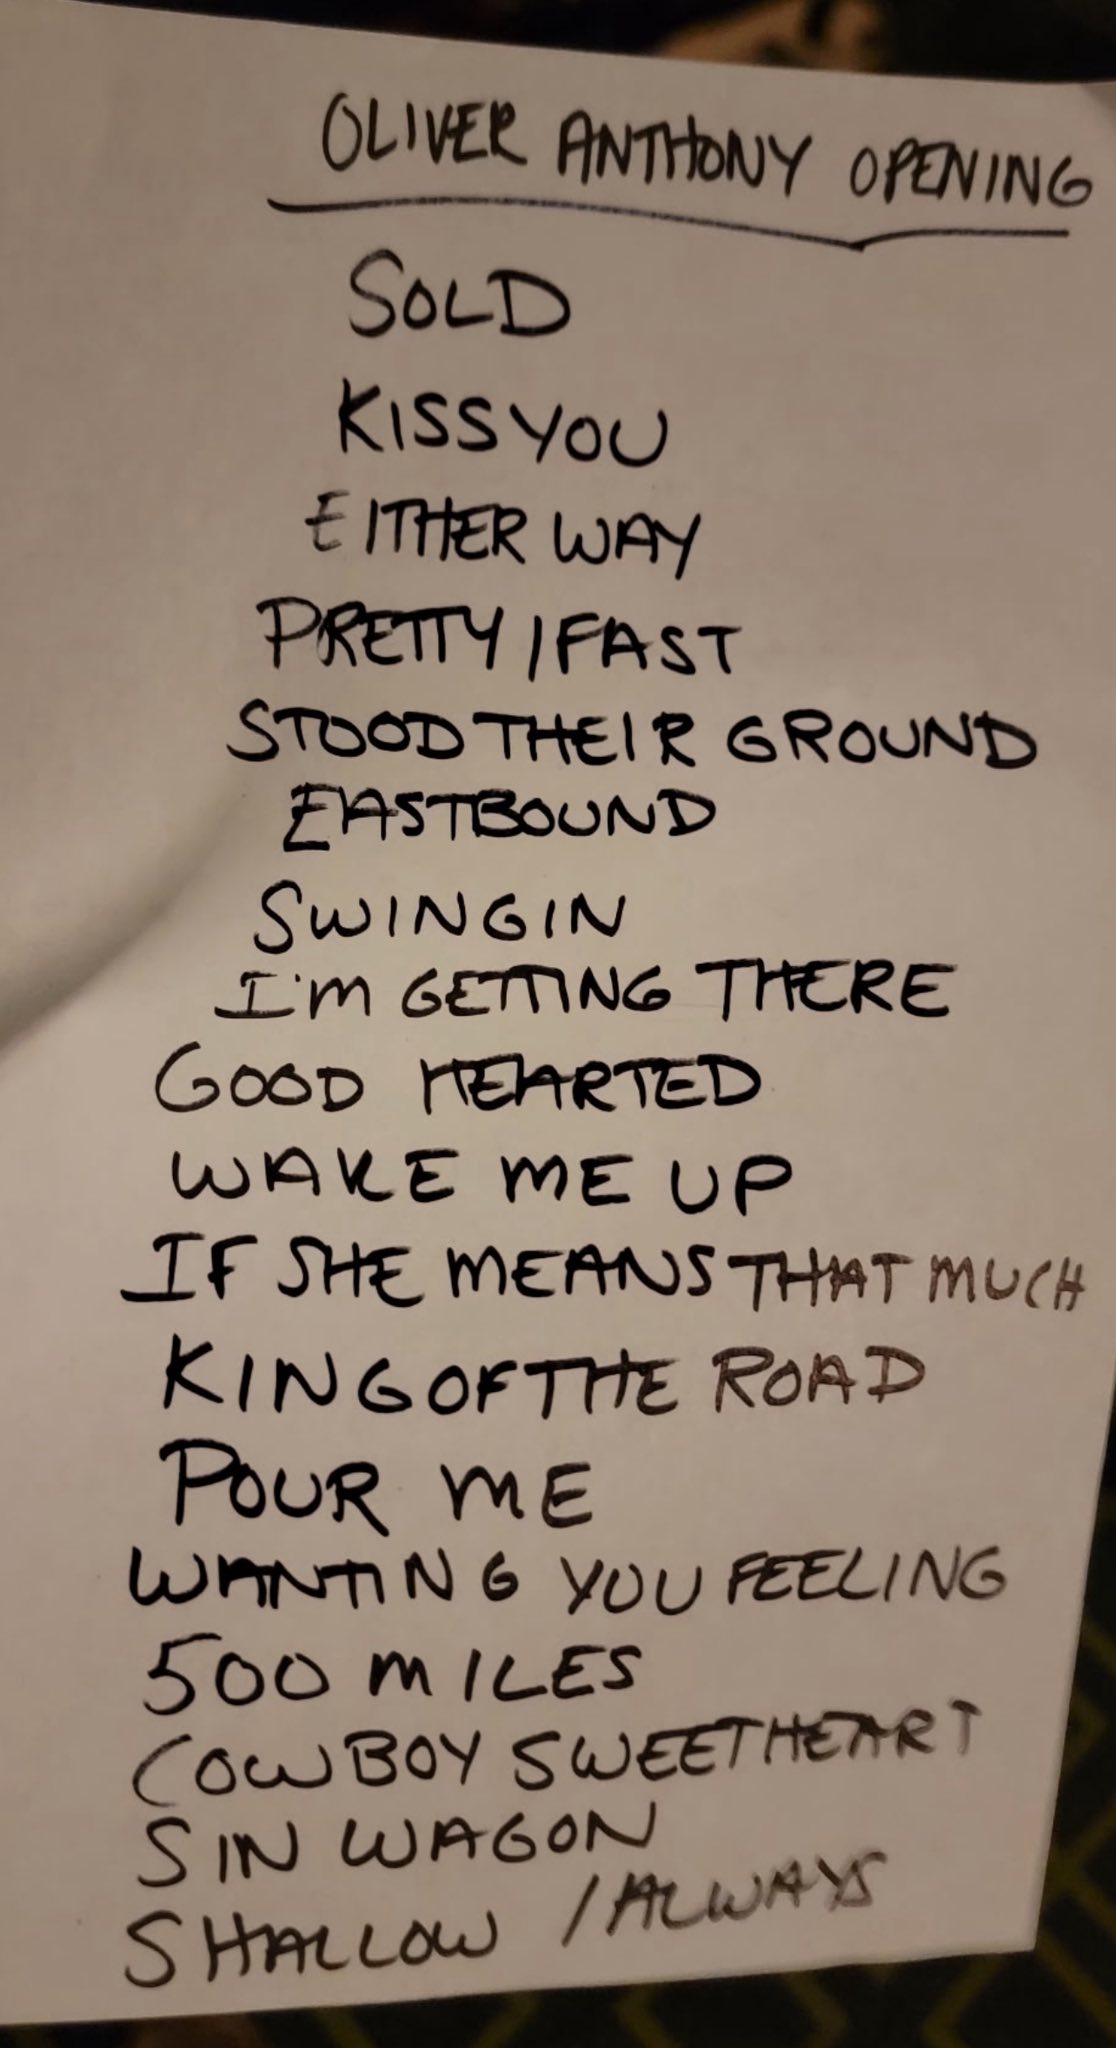 OLIVER ANTHONY OPENING
SOLD
KISS YOU
EITHER WAY
PRETTY / FAST
STOOD THEIR GROUND
EASTBOUND
SWINGIN
I'M GETTING THERE
GOOD HEARTED
WAKE ME UP
IF SHE MEANS THAT MUCH
KING OF THE ROAD
POUR ME
WANTING YOU FEELING
500 MILES
COWBOY SWEETHEART
SIN WAGON
SHALLOW / ALWAYS